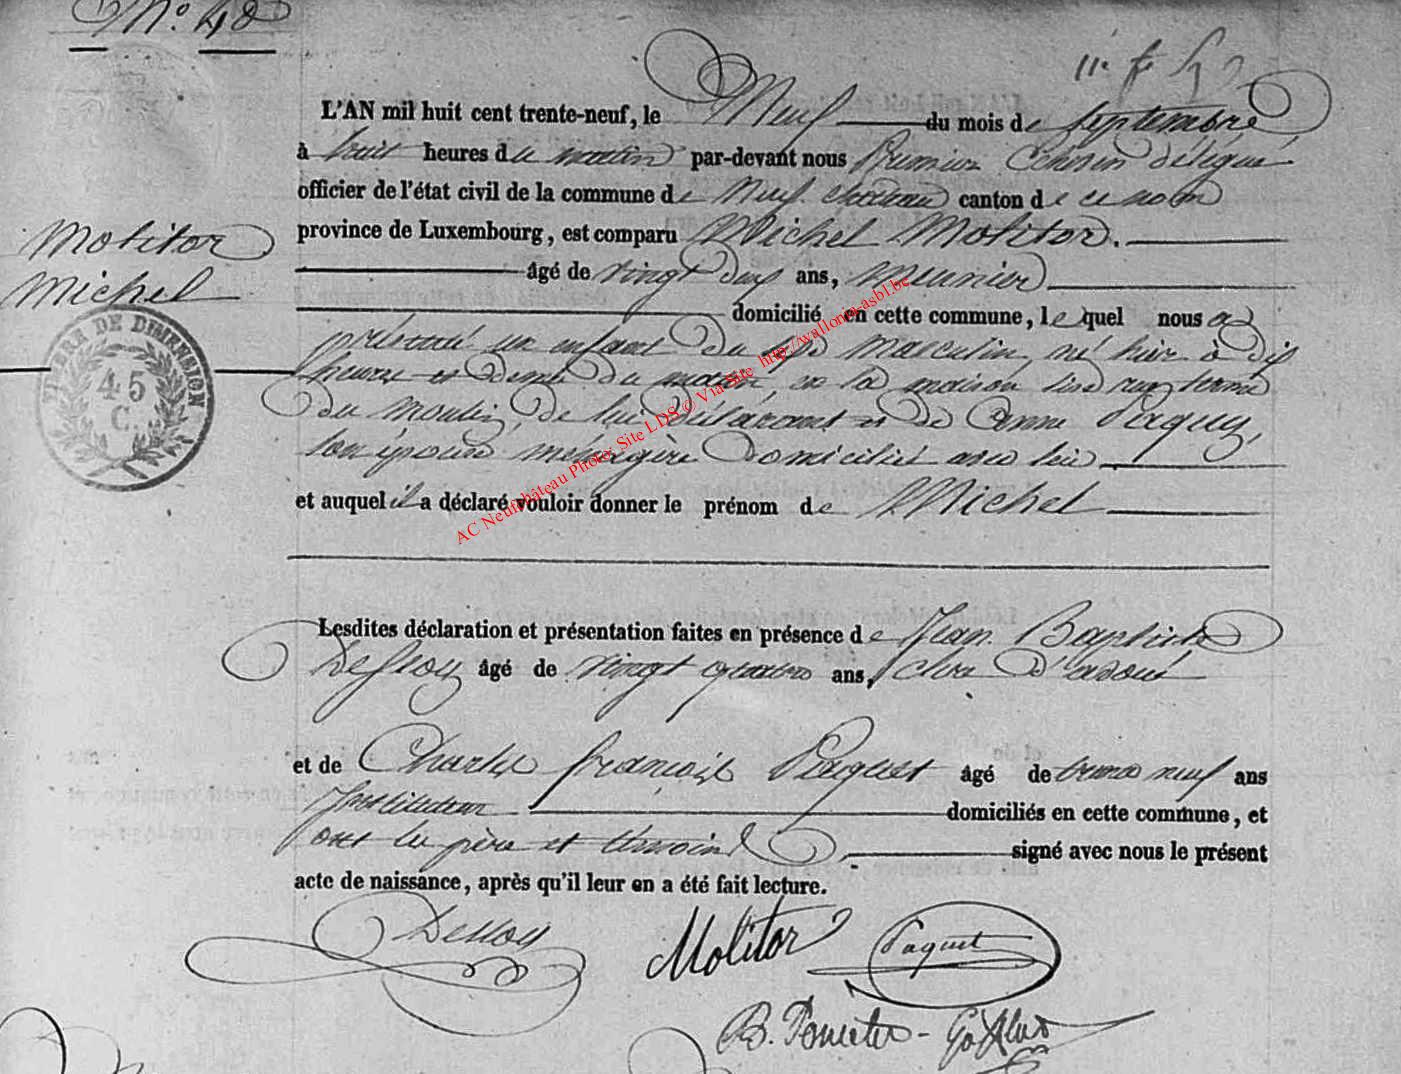 N° 48
L'AN mil huit cent trente-neuf, le Neuf du mois de septembre
à huit heures du matin par-devant nous Premier Echevin délégué
officier de l'état civil de la commune de Neufchateau canton de ce nom
province de Luxembourg, est comparu Michel Molitor.
Molitor
Michel
âgé de vingt deux ans, Meunier
domicilié en cette commune, lequel nous a
présenté un enfant du sexe masculin, né hier à dix
heures et demie du matin, en la maison sise rue
du Moulin, de lui déclarant et de Anne Paquay,
son épouse ménagère domiciliée avec lui
et auquel il a déclaré vouloir donner le prénom de Michel
TIMBRE DE DIMENSION
45
C.
AC Neufchâteau Photo: Site LDS © Via Site http://wallonia-asbl.be
Lesdites déclaration et présentation faites en présence de Jean Baptiste
Dessoy âgé de vingt quatre ans, clerc d'avoué
et de Charles françois Paquet âgé de trente neuf ans
Instituteur domiciliés en cette commune, et
ont les père et témoins signé avec nous le présent
acte de naissance, après qu'il leur en a été fait lecture.
Dessoy Molitor Paquet